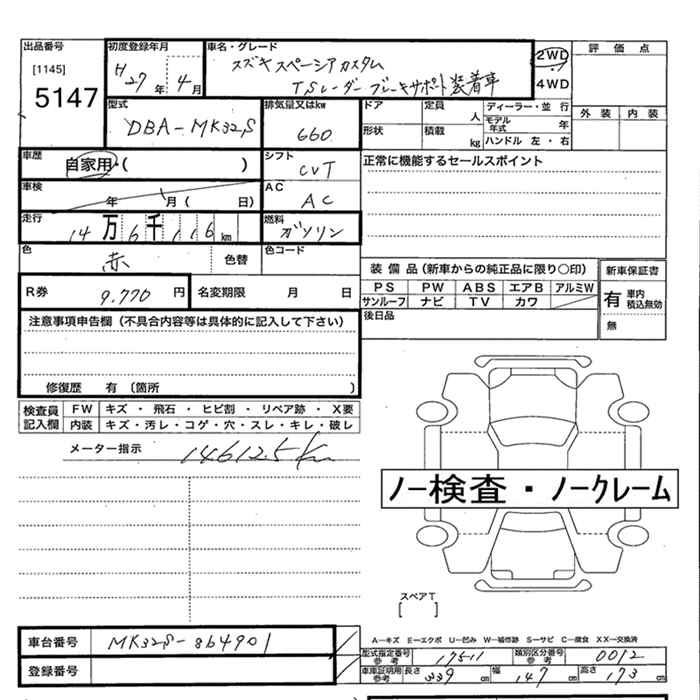 出品番号
[1145]
5147
初度登録年月
H 27 年 4 月
車名・グレード
スズキ スペーシアカスタム
TSレーダーブレーキサポート装着車
2WD
4WD
評価点
外装 内装
型式
DBA-MK32S
排気量又はkw
660
ドア
定員
人
ディーラー・並 行
モデル年式
年
形状
積載
kg
ハンドル 左・右
車歴
自家用・( )
シフト
CVT
正常に機能するセールスポイント
車検
年 月( 日)
AC
AC
走行
14 万 6 千 116 km
燃料
ガソリン
色
赤
色替
色コード
装備品(新車からの純正品に限り○印)
新車保証書
PS PW ABS エアB アルミW
サンルーフ ナビ TV カワ
有 車内積込無効
無
R券
9.770 円
名変期限 月 日
後日品
注意事項申告欄(不具合内容等は具体的に記入して下さい)
修復歴 有 〔箇所 〕
検査員記入欄
FW キズ・飛石・ヒビ割・リペア跡・X要
内装 キズ・汚レ・コゲ・穴・スレ・キレ・破レ
メーター指示
146125km
ノー検査・ノークレーム
スペアT
[ ]
車台番号
MK32S-864901
登録番号
A-キズ E-エクボ U-凹み W-補修跡 S-サビ C-腐食 XX-交換済
型式指定番号参考
17511
類別区分番号参考
0012
車庫証明用参考
長さ 339 cm
幅 147 cm
高さ 173 cm